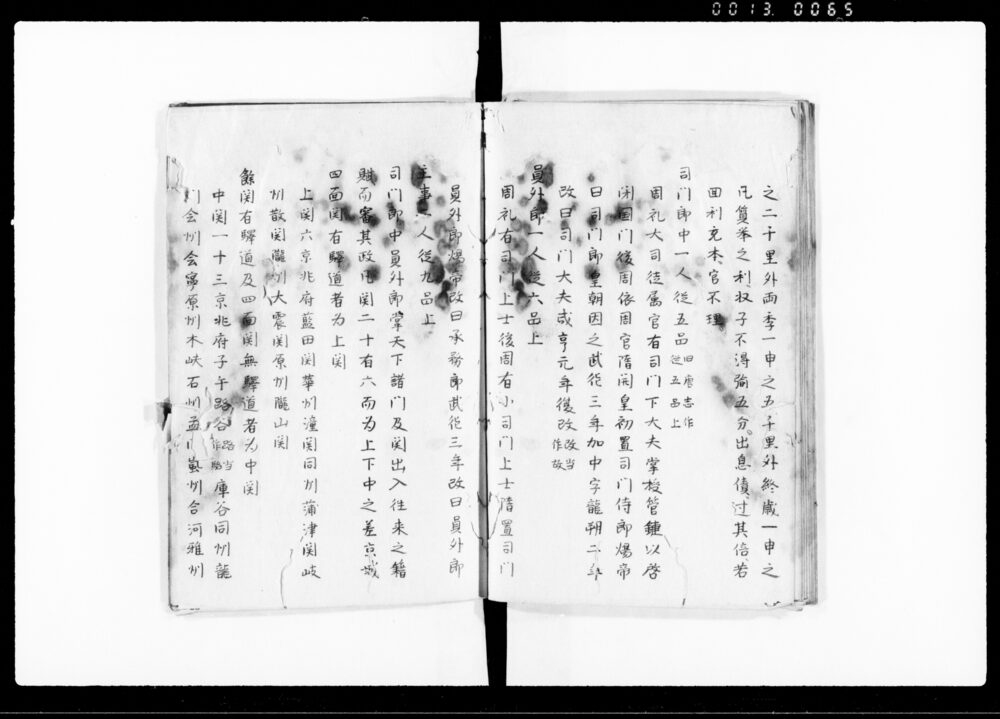 0013 0065
之二千里外両季一申之五千里外終歳一申之
凡質挙之利収子不得踰五分出息債過其倍若
回利充本官不理
司门郎中一人従五品旧唐志作従五品上
周礼大司徒属官有司门下大夫掌授管鍵以啓
闭国门後周依周官隋開皇初置司门侍郎煬帝
曰司门郎皇朝因之武德三年加中字龍朔二年
改曰司门大夫咸亨元年後改改当作故
員外郎一人従六品上
周礼有司门上士後周有小司门上士隋置司门
員外郎煬帝改曰承務郎武德三年改曰員外郎
主事二人従九品上
司门郎中員外郎掌天下諸门及関出入往来之籍
賦而審其政凡関二十有六而为上下中之差京城
四面関有驛道者为上関
上関六京兆府藍田関華州潼関同州蒲津関岐
州散関隴州大震関原州隴山関
餘関有驛道及四面関無驛道者为中関
中関一十三京兆府子午路谷路当作駱庫谷同州龍
门会州会寧原州木峡石州孟门嵐州合河雅州